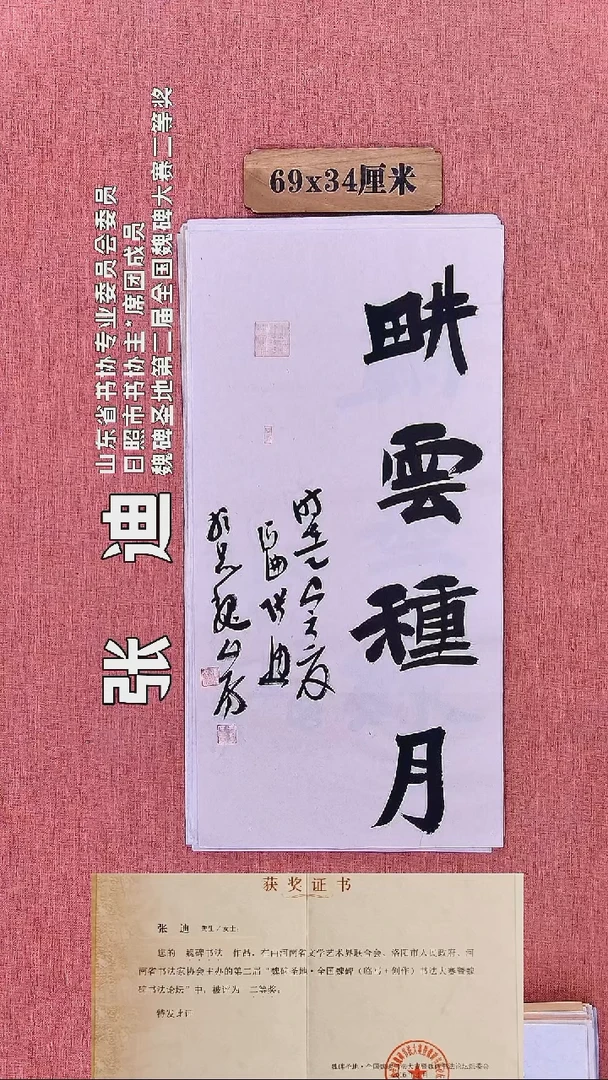 69x34厘米
畊雲種月
张 迪
山东省书协专业委员会委员
日照市书协主*席团成员
魏碑圣地第二届全国魏碑大赛二等奖
获奖证书
张 迪 先生/女士:
您的 魏碑书法 作品,在由河南省文学艺术界联合会、洛阳市人民政府、河
南省书法家协会主办的第二届“魏碑圣地·全国魏碑(临写+创作)书法大赛暨魏
碑书法论坛”中,被评为 二等奖。
特发此证